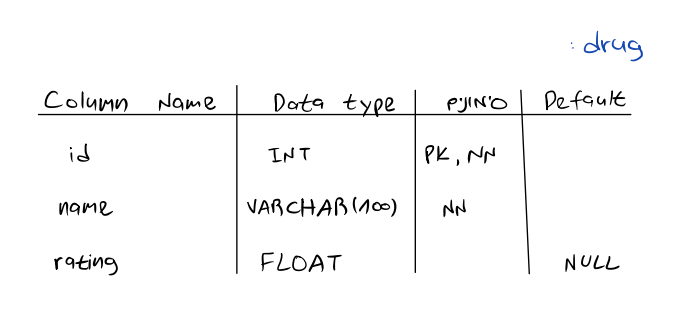 : drug
Column Name Data type סימנים Default
id INT PK, NN
name VARCHAR(100) NN
rating FLOAT NULL